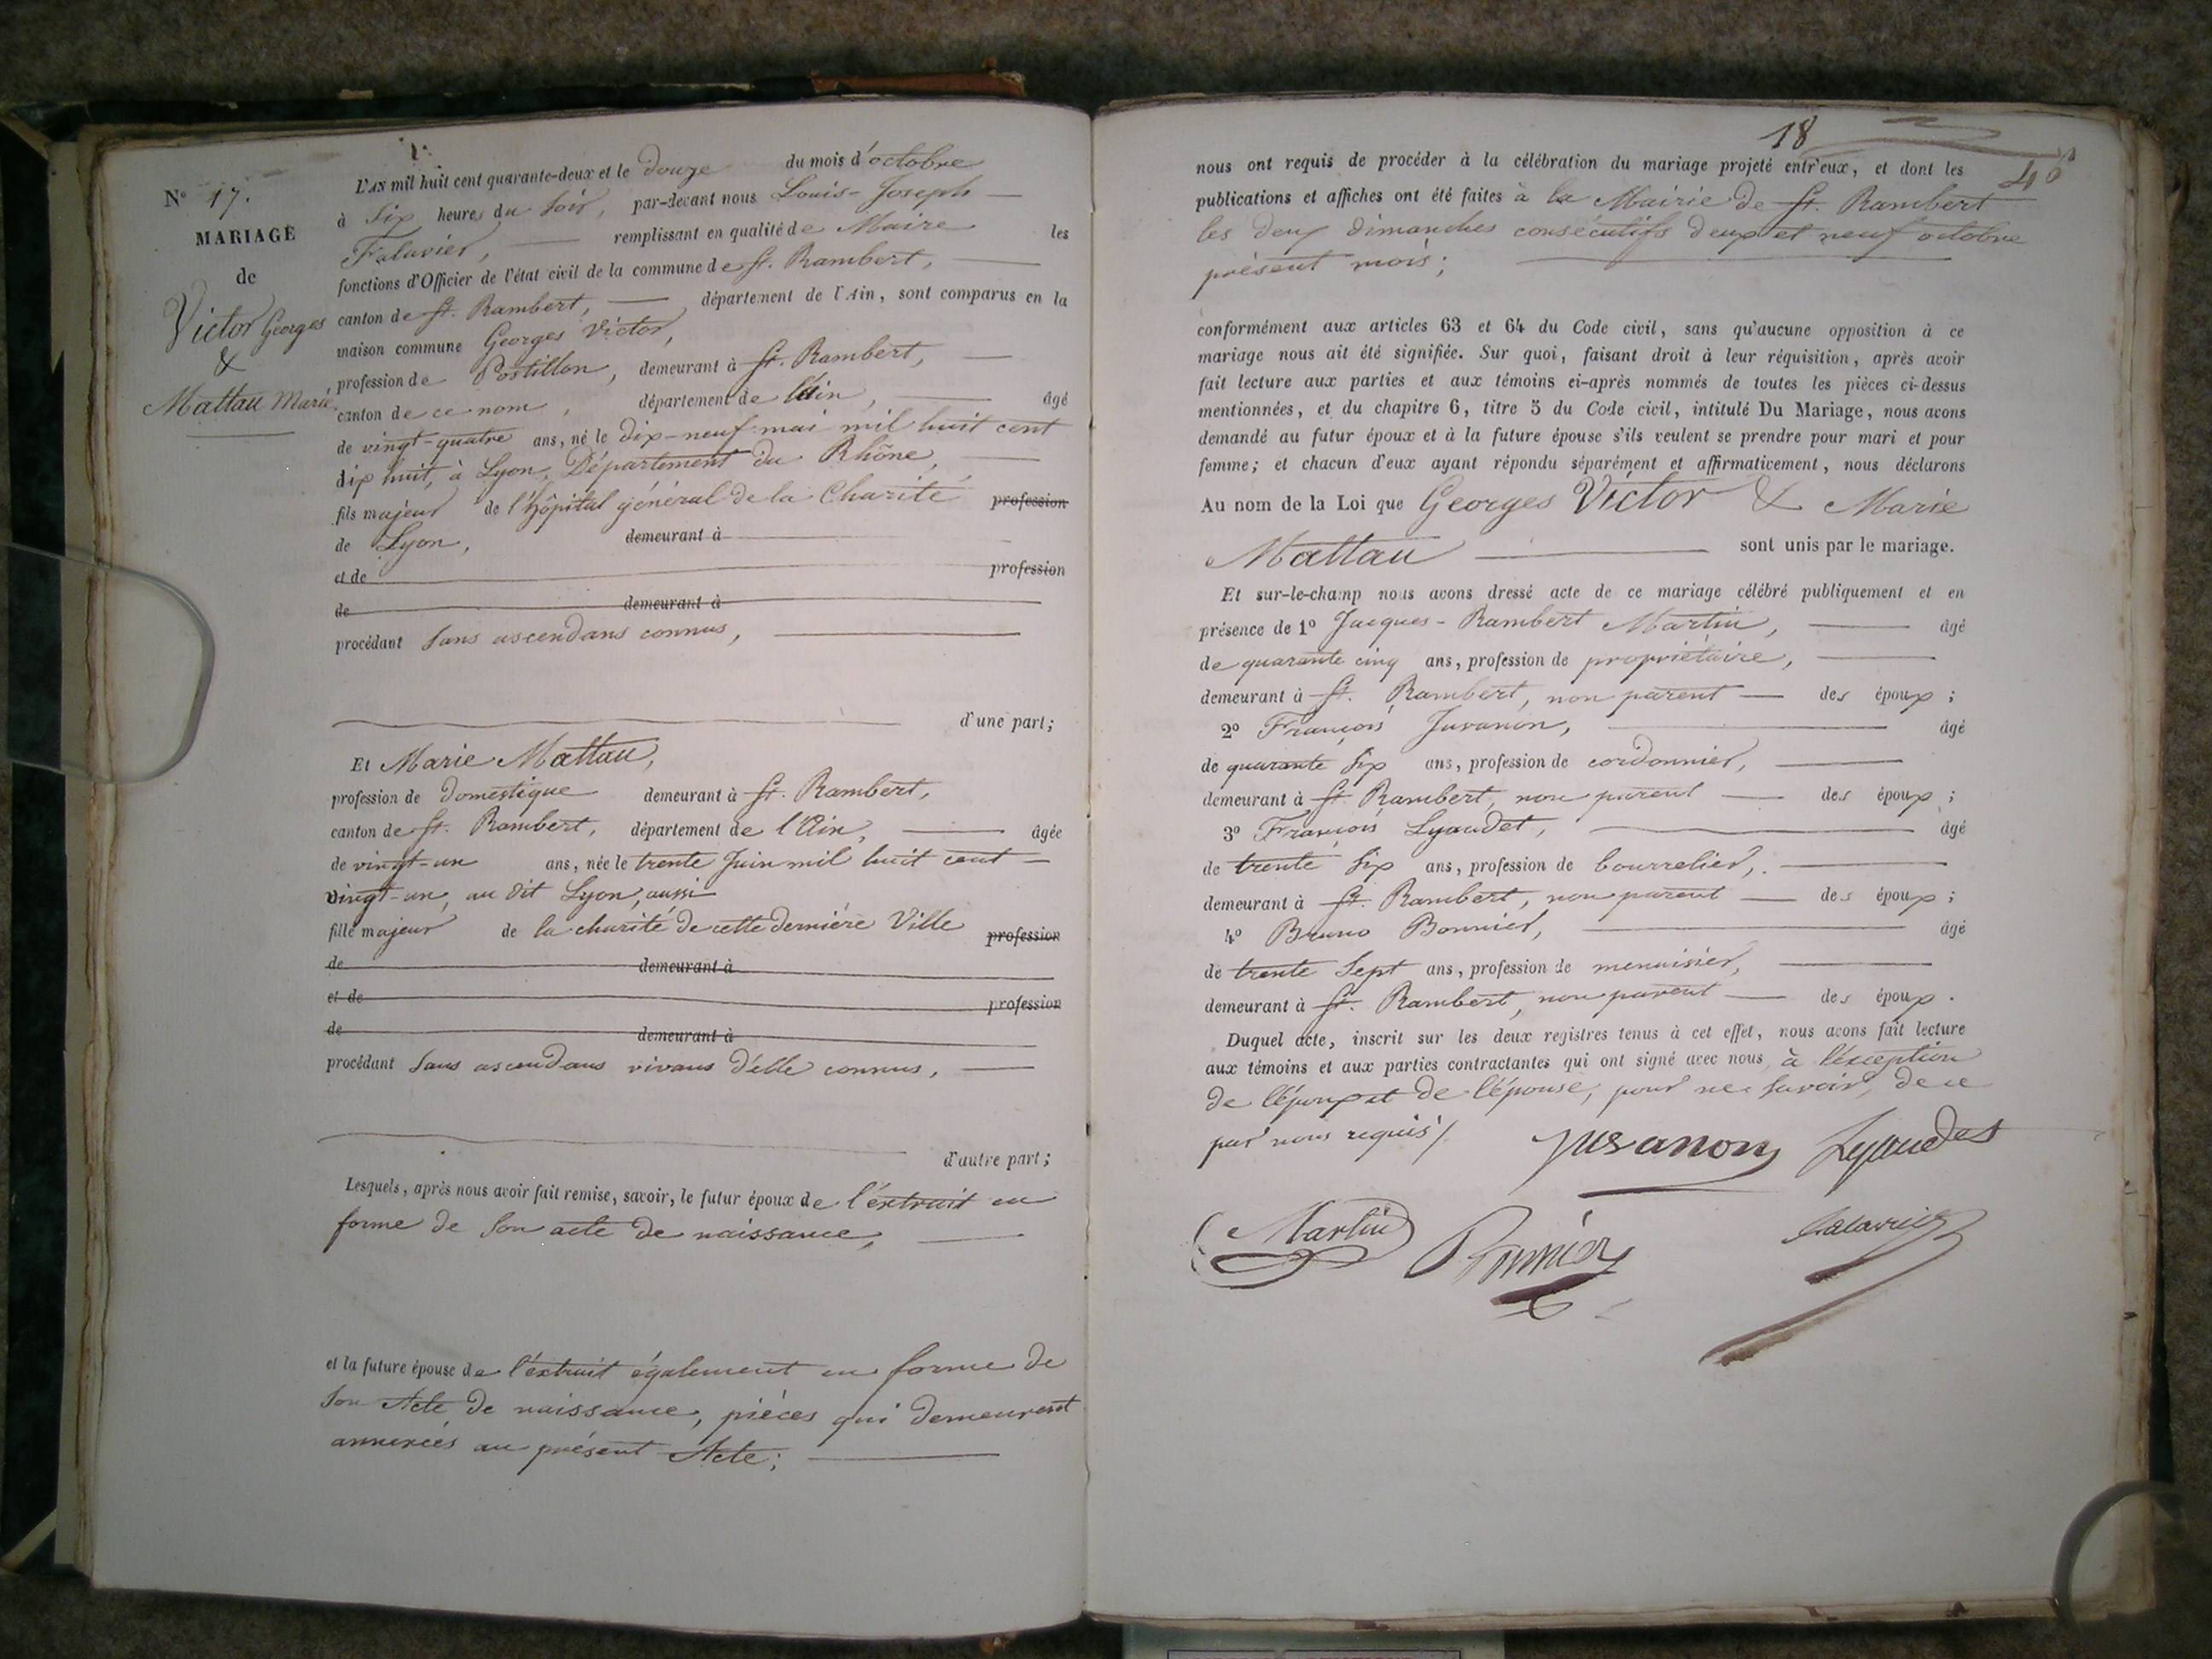 N° 17.
MARIAGE
de
Victor Georges
&
Mattau Marie
L'AN mil huit cent quarante-deux et le douze du mois d'octobre
à six heures du soir, par-devant nous Louis-Joseph
Falavier, remplissant en qualité de Maire les
fonctions d'Officier de l'état civil de la commune de St. Rambert,
canton de St. Rambert, département de l'Ain, sont comparus en la
maison commune Georges Victor,
profession de Postillon, demeurant à St. Rambert,
canton de ce nom, département de l'Ain, âgé
de vingt-quatre ans, né le dix-neuf mai mil huit cent
dix huit, à Lyon, Département du Rhône,
fils majeur de l'hôpital général de la Charité profession
de Lyon, demeurant à
et de profession
de demeurant à
procédant sans ascendans connus,
d'une part;
Et Marie Mattau,
profession de domestique demeurant à St. Rambert,
canton de St. Rambert, département de l'Ain, âgée
de vingt-un ans, née le trente Juin mil huit cent
vingt-un, au dit Lyon, aussi
fille majeur de la charité de cette dernière Ville profession
de demeurant à
et de profession
de demeurant à
procédant sans ascendans vivans d'elle connus,
d'autre part;
Lesquels, après nous avoir fait remise, savoir, le futur époux de l'extrait en
forme de son acte de naissance,
et la future épouse de l'extrait également en forme de
son Acte de naissance, pièces qui demeurent
annexées au présent Acte;
18
46
nous ont requis de procéder à la célébration du mariage projeté entr'eux, et dont les
publications et affiches ont été faites à la Mairie de St. Rambert
les deux dimanches consécutifs deux et neuf octobre
présent mois;
conformément aux articles 63 et 64 du Code civil, sans qu'aucune opposition à ce
mariage nous ait été signifiée. Sur quoi, faisant droit à leur réquisition, après avoir
fait lecture aux parties et aux témoins ci-après nommés de toutes les pièces ci-dessus
mentionnées, et du chapitre 6, titre 5 du Code civil, intitulé Du Mariage, nous avons
demandé au futur époux et à la future épouse s'ils veulent se prendre pour mari et pour
femme; et chacun d'eux ayant répondu séparément et affirmativement, nous déclarons
Au nom de la Loi que Georges Victor & Marie
Mattau sont unis par le mariage.
Et sur-le-champ nous avons dressé acte de ce mariage célébré publiquement et en
présence de 1° Jacques-Rambert Martin, âgé
de quarante cinq ans, profession de propriétaire,
demeurant à St. Rambert, non parent des époux;
2° François Juvanon, âgé
de quarante six ans, profession de cordonnier,
demeurant à St. Rambert, non parent des époux;
3° François Lyaudet, âgé
de trente six ans, profession de bourrelier,
demeurant à St. Rambert, non parent des époux;
4° Bruno Bonnier, âgé
de trente sept ans, profession de menuisier,
demeurant à St. Rambert, non parent des époux.
Duquel acte, inscrit sur les deux registres tenus à cet effet, nous avons fait lecture
aux témoins et aux parties contractantes qui ont signé avec nous, à l'éxception
de l'époux et de l'épouse, pour ne savoir, de ce
par nous requis/.
Juvanon Lyaudet
Martin Bonnier Falavier